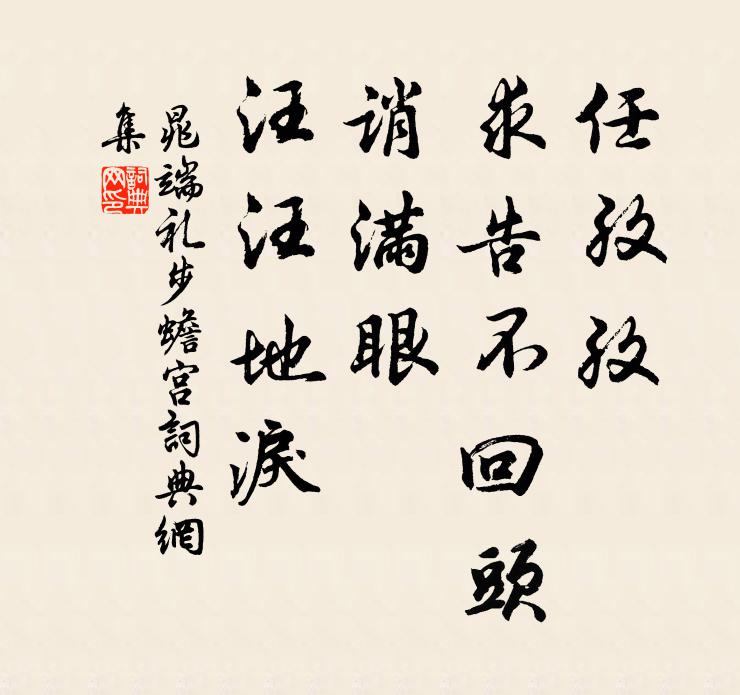 任孜孜
求告不回頭
誚滿眼
汪汪地淚
晁端礼步蟾宮詞典網
集
詞典
网印